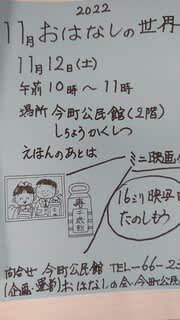 2022
11月おはなしの世界
11月12日(土)
午前10時～11時
場所 今町公民館(2階)
しちょうかくしつ
えほんのあとは
ミニ映画
千歳飴
16ミリ映写
たのしもう
問合せ 今町公民館 TEL-66-2
(企画・運営)おはなしの会、今町公民